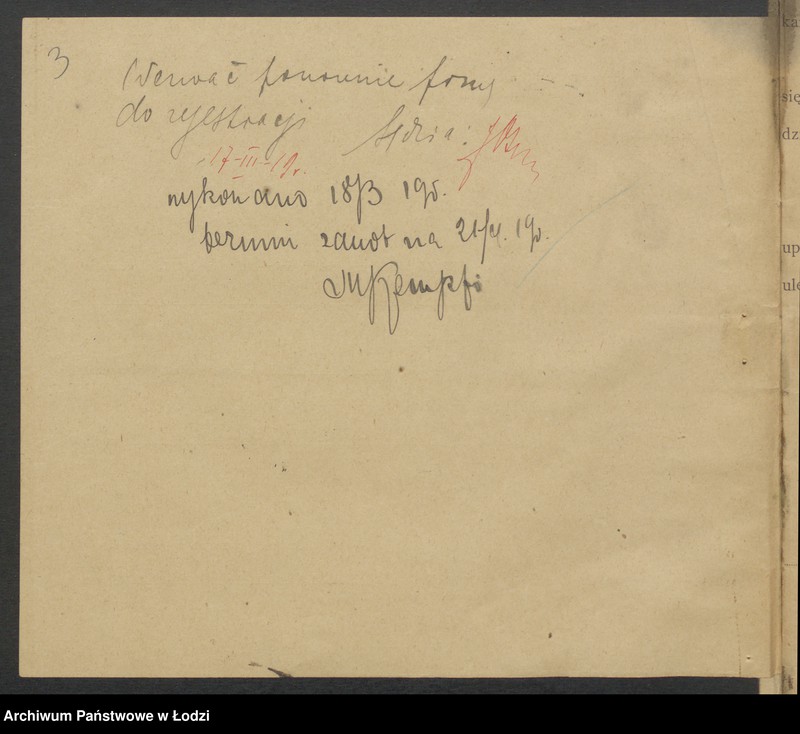 3
Wezwać ponownie firmę
do rejestracji Sędzia:
17-III-19r.
wykonano 18/3 19r.
termin zanot na 21/4. 19r.
MKempfi
Archiwum Państwowe w Łodzi
ka
się
dz
up
ule